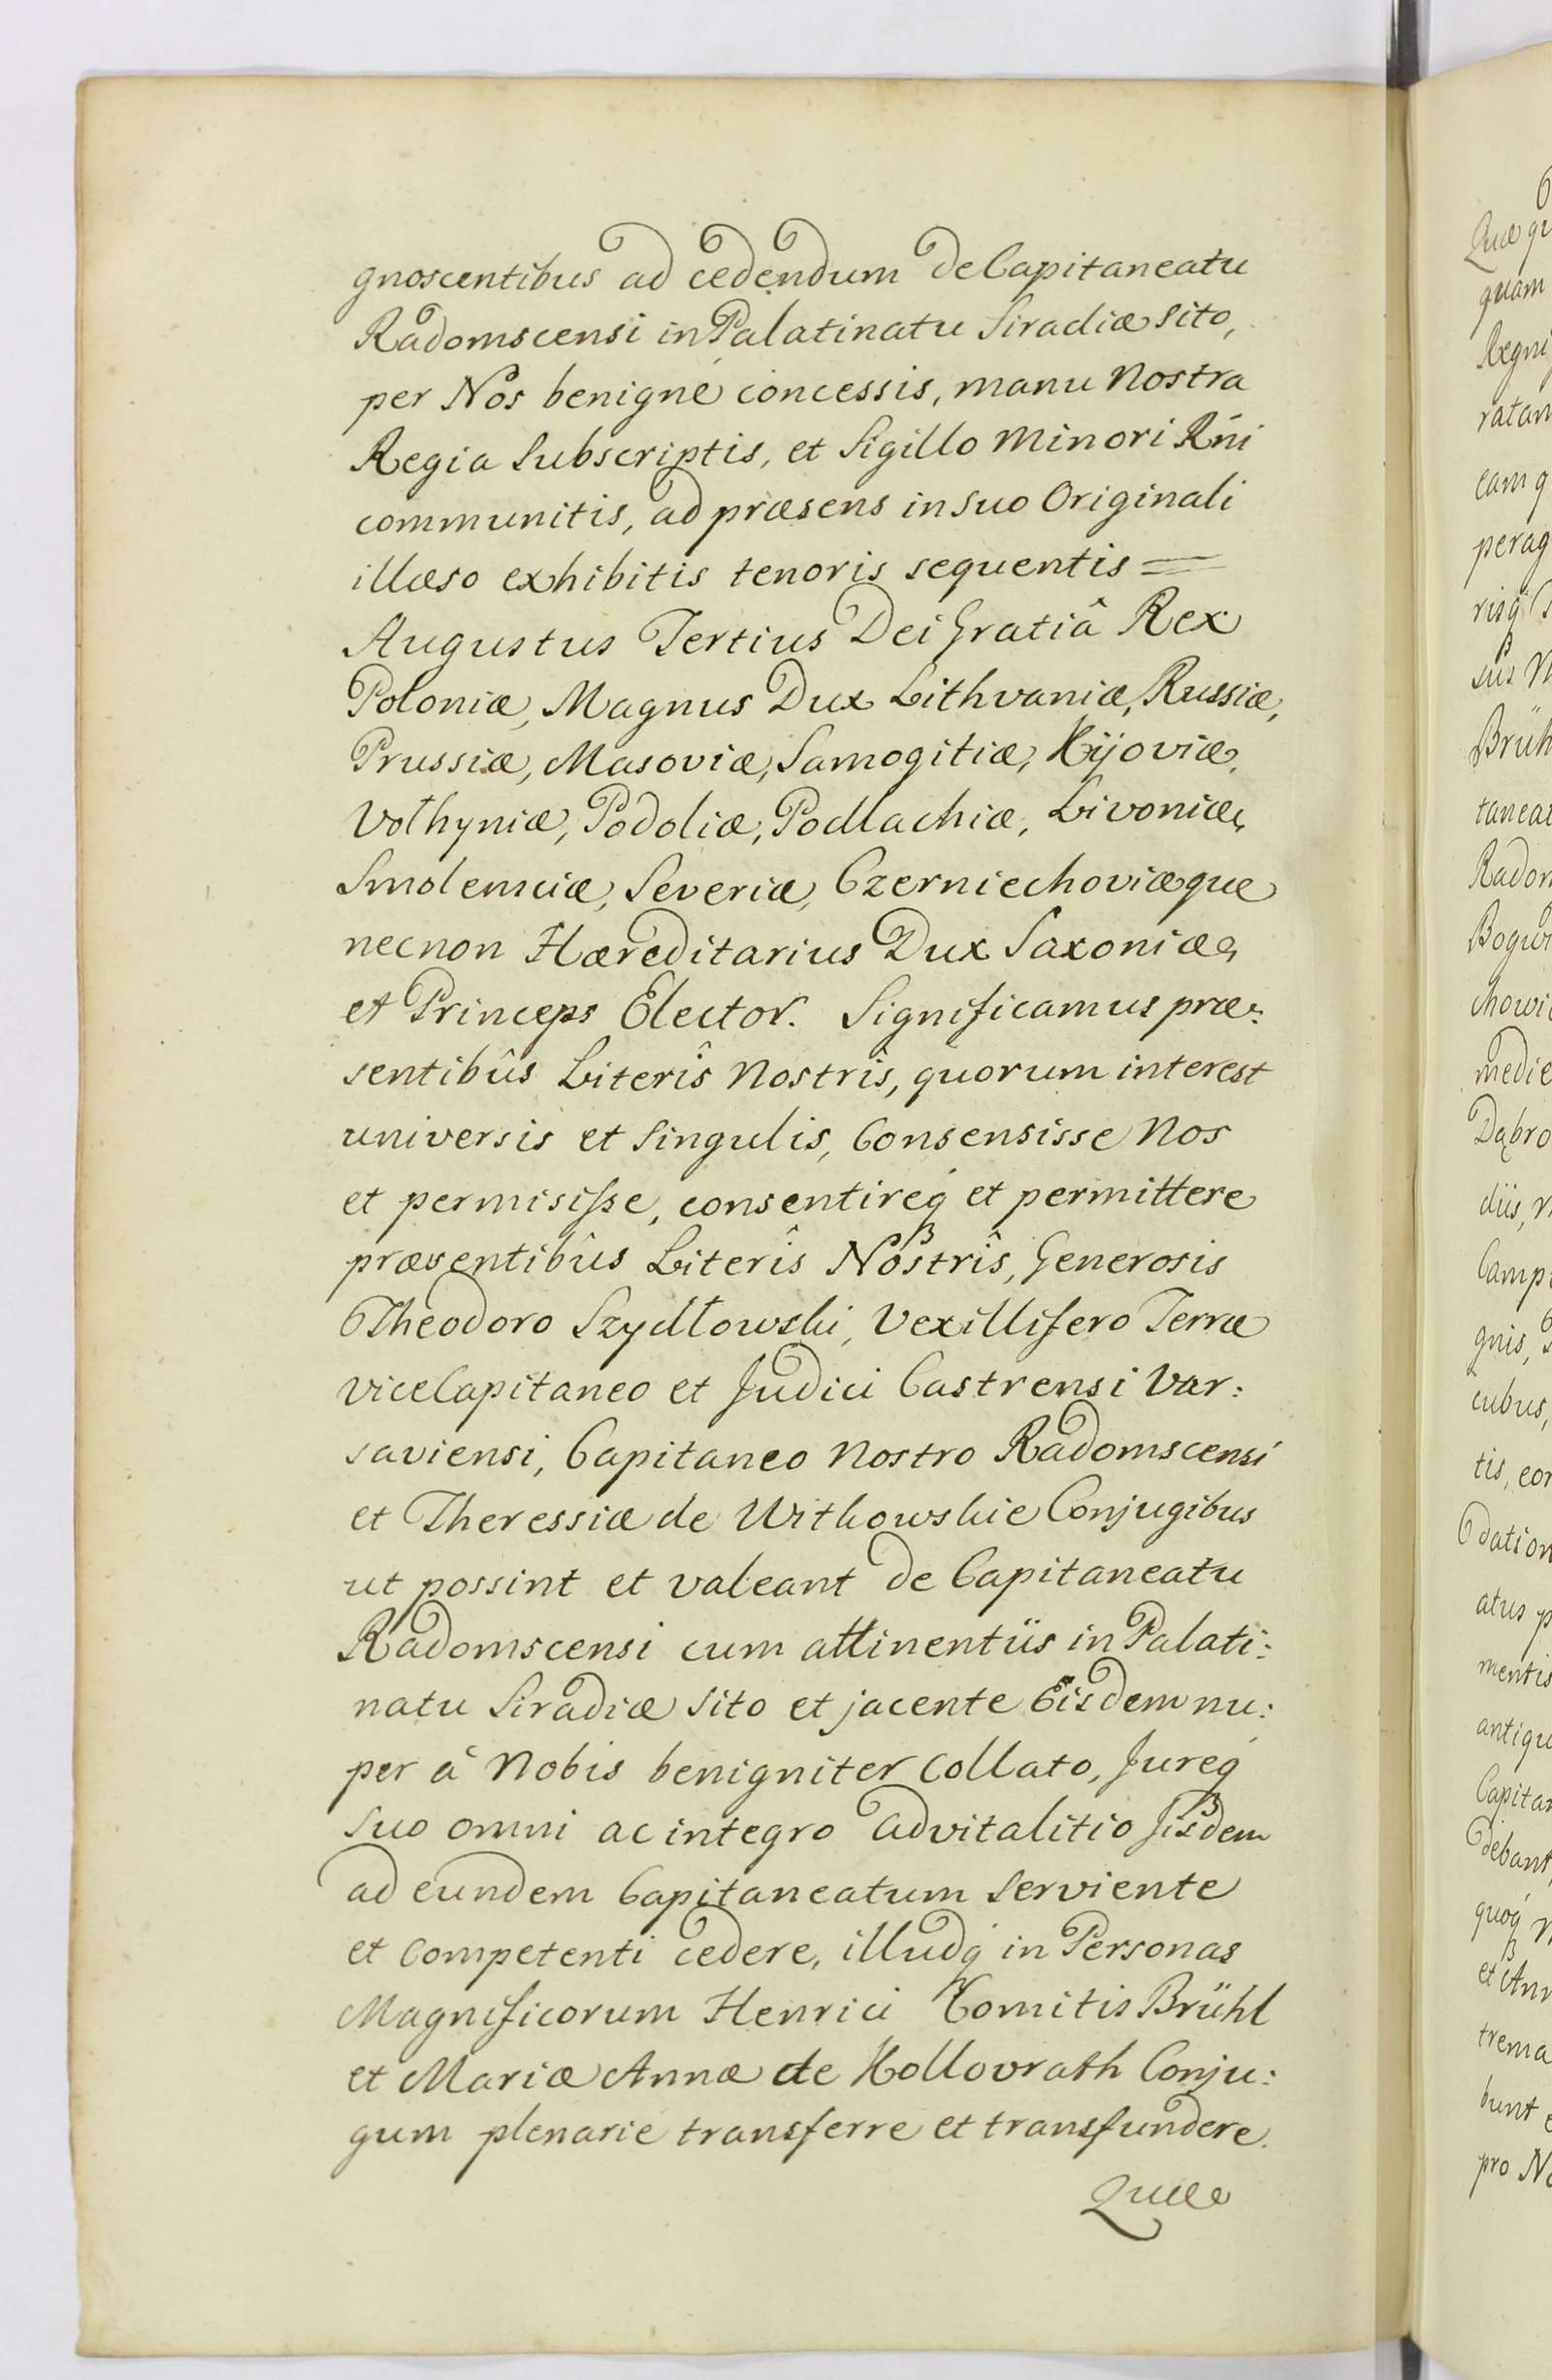 gnoscentibus ad cedendum de Capitaneatu
Radomscensi in Palatinatu Siradiæ sito,
per Nos benigne concessis, manu Nostra
Regia Subscriptis, et Sigillo Minori Rńi
communitis, ad præsens in suo Originali
illæso exhibitis tenoris sequentis =
Augustus Tertius Dei Gratiâ Rex
Poloniæ, Magnus Dux Lithvaniæ, Russiæ,
Prussiæ, Masoviæ, Samogitiæ, Kijoviæ,
Volhyniæ, Podoliæ, Podlachiæ, Livoniæ,
Smolensciæ, Severiæ, Czerniechoviæque
necnon Hæreditarius Dux Saxoniæ,
et Princeps Elector. Significamus præ:
sentibûs Literîs Nostrîs, quorum interest
universis et singulis, Consensisse Nos
et permisisse, consentireq́ et permittere
præsentibûs Literîs Nostrîs, Generosis
Theodoro Szydłowski, Vexillifero Terræ
viceCapitaneo et Judici Castrensi Var:
saviensi, Capitaneo Nostro Radomscensi
et Theressiæ de Witkowskie Conjugibus
ut possint et valeant de Capitaneatu
Radomscensi cum attinentiis in Palati:
natu Siradiæ sito et jacente Eisdem nu:
per â Nobis benigniter collato, Jureq́
suo omni ac integro advitalitio Jisdem
ad eundem Capitaneatum serviente
et competenti cedere, illudq́ in Personas
Magnificorum Henrici Comitis Brühl
et Mariæ Annæ de Kollovrath Conju:
gum plenarie transferre et transfundere.
Quæ
Quæ qu
quam
Regni
ratam
eam q
perag
risq́
sus N
Brüh
taneat
Radom
Bogwi
chowi
medie
Dąbro
diis, n
Camp
gnis,
cubus,
tis, eor
dation
atus p
mentis
antiqu
Capitan
debant
quoq́ N
et Ann
trema
bunt e
pro No